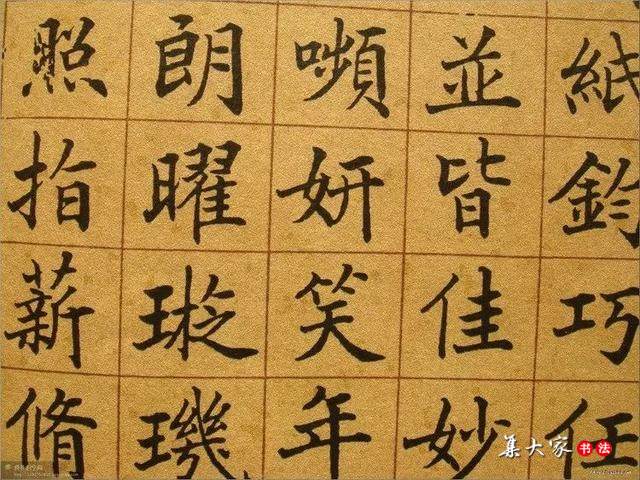 紙鈞巧任
並皆佳妙
嚬妍笑年
朗曜璇璣
照指薪脩
集大家 书法